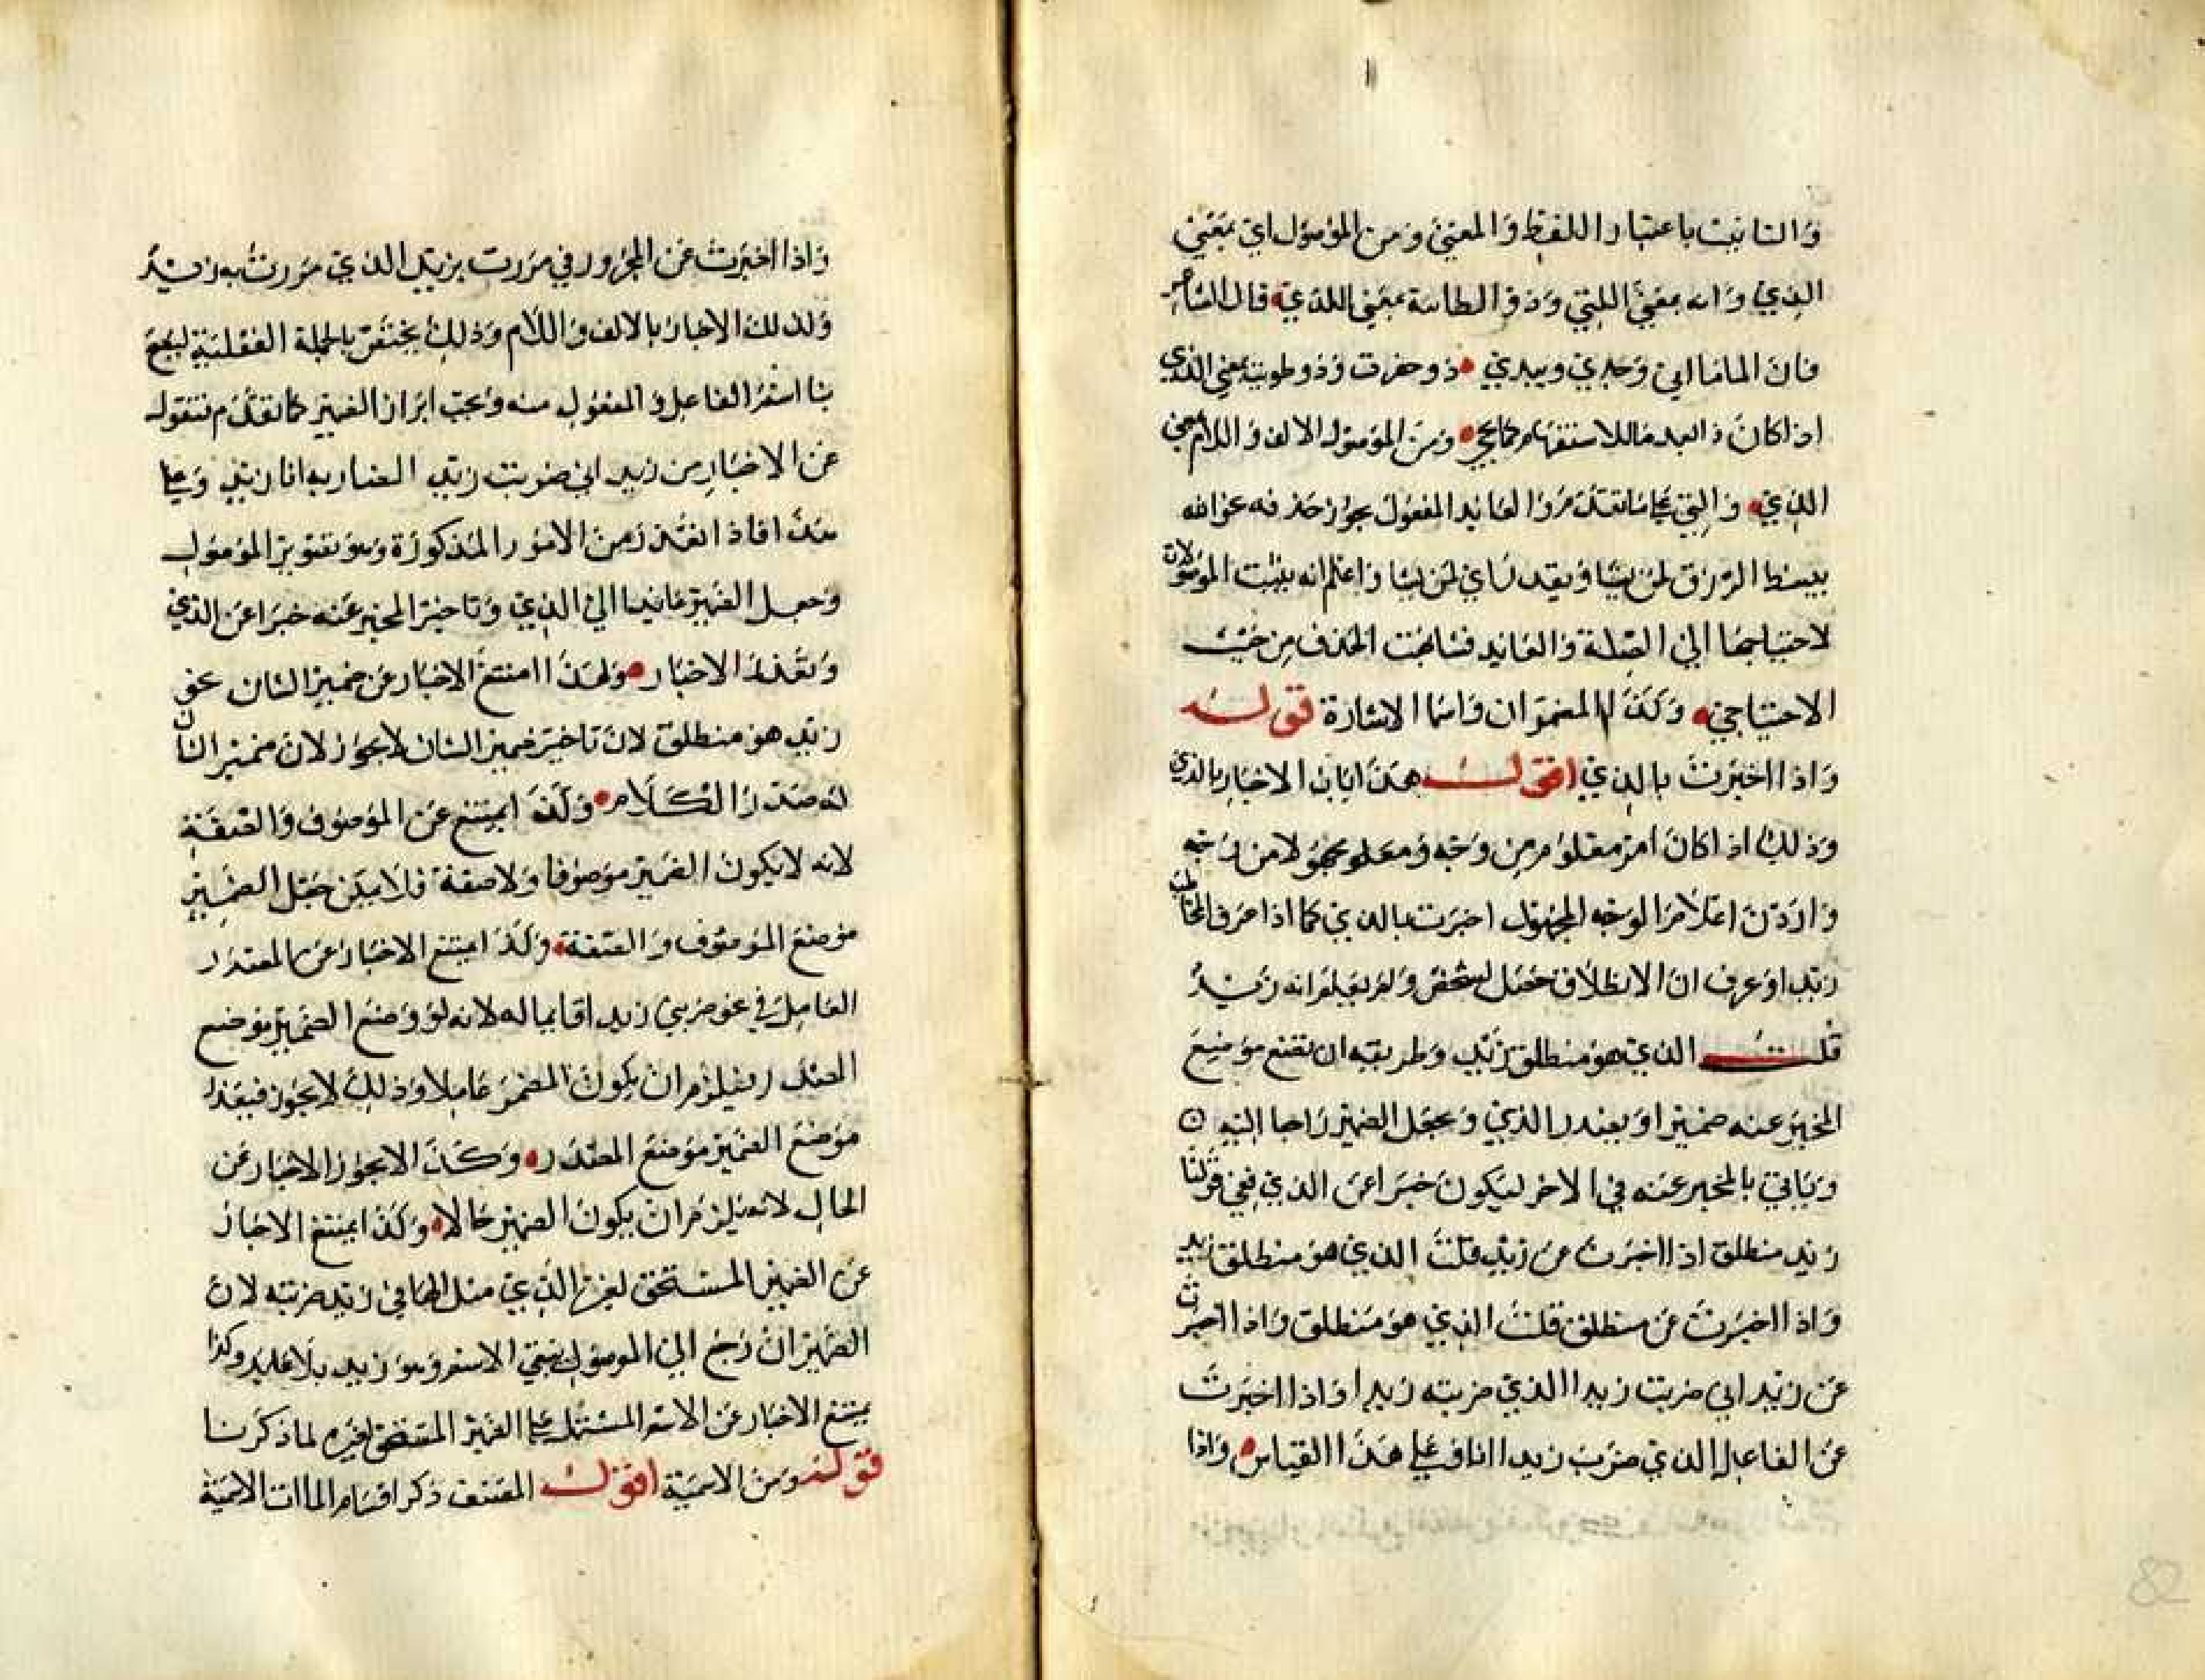 والتانيث باعتبار اللفظ والمعنى ومن الموصول اي بمعني
الذي واية بمعني التي وذو الطائية بمعني الذي قال الشاعر
فان الما ما ابي وجدي وبيري ذو حفرت وذو طويت بمعني الذي
اذا كان ذا بعد ما للاستفهام كما يجي ومن الموصول الالف واللام بمعني
الذي والتي علي ما تقدم والعائد المفعول يجوز حذفه نحو الله
يبسط الرزق لمن يشا ويقدر اي لمن يشا واعلم انه بنيت الموصولات
لاحتياجها الي الصلة والعائد فشابهت الحذف من حيث
الاحتياجي وكذا المضمران واسما الاشارة قوله
واذا اخبرت بالذي اقول هذا باب الاخبار بالذي
وذلك اذا كان امر معلوم من وجه ومعلو مجهولا من وجه
واردت اعلام الوجه المجهول اخبرت بالذي كما اذا عرف المخاطب
زيد او عرف ان الانطلاق حصل لشخص ولم يعلم انه زيد
قلت الذي هو منطلق زيد وطريقه ان تضع موضع
المخبر عنه ضميرا وبصدر الذي وتجعل الضمير راجعا اليه
وياتي بالمخبر عنه في الاخر ليكون خبرا عن الذي ففي قولنا
زيد منطلق اذا اخبرت عن زيد قلت الذي هو منطلق زيد
واذا اخبرت عن منطلق قلت الذي هو منطلق واذا اخبرت
عن زيد اي ضربت زيدا الذي ضربته زيدا واذا اخبرت
عن الفاعل الذي ضرب زيدا انا وعلي هذا القياس واذا
واذا اخبرت عن المجرور في مررت بزيد الذي مررت به زيد
وكذلك الاخبار بالالف واللام وذلك يختص بالجملة الفعلية ليصح
بنا اسم الفاعل والمفعول منه ويجب ابراز الضمير كما تقدم فتقول
عن الاخبار من زيد اي ضربت زيد الضاربه انا زيد وعلي
هذا فاذا تعذر من الامور المذكورة وهو تصوير الموصول
وجعل الضمير عايدا الي الذي وتاخير المخبر عنه خبرا عن الذي
وتعذر الاخبار ولهذا امتنع الاخبار عن ضمير الشان نحو
زيد هو منطلق لان تاخير ضمير الشان لا يجوز لان ضمير الشان
له صدر الكلام وكذا يمتنع عن الموصوف والصفة
لانه لا يكون الضمير موصوفا ولا صفة فلا يمكن جعل الضمير
موضع الموصوف والصفة وكذا يمتنع الاخبار عن المصدر
العامل في نحو ضربي زيدا قايما له لانه لو وضع الضمير موضع
المصدر فيلزم ان يكون المضمر عاملا وذلك لا يجوز فتعذر
موضع الضمير موضع المصدر وكذا لا يجوز الاخبار عن
الحال لانه يلزم ان يكون الضمير حالا وكذا يمتنع الاخبار
عن الضمير المستحق لغير الذي مثل الها في زيد ضربته لان
الضمير ان رجع الي الموصول بقي الاسم وهو زيد بلا عايد وكذا
يمتنع الاخبار عن الاسم المشتمل علي الضمير المستحق لغيره لما ذكرنا
قوله ومن الاسمية اقول المصنف ذكر اقسام الماات الاسمية